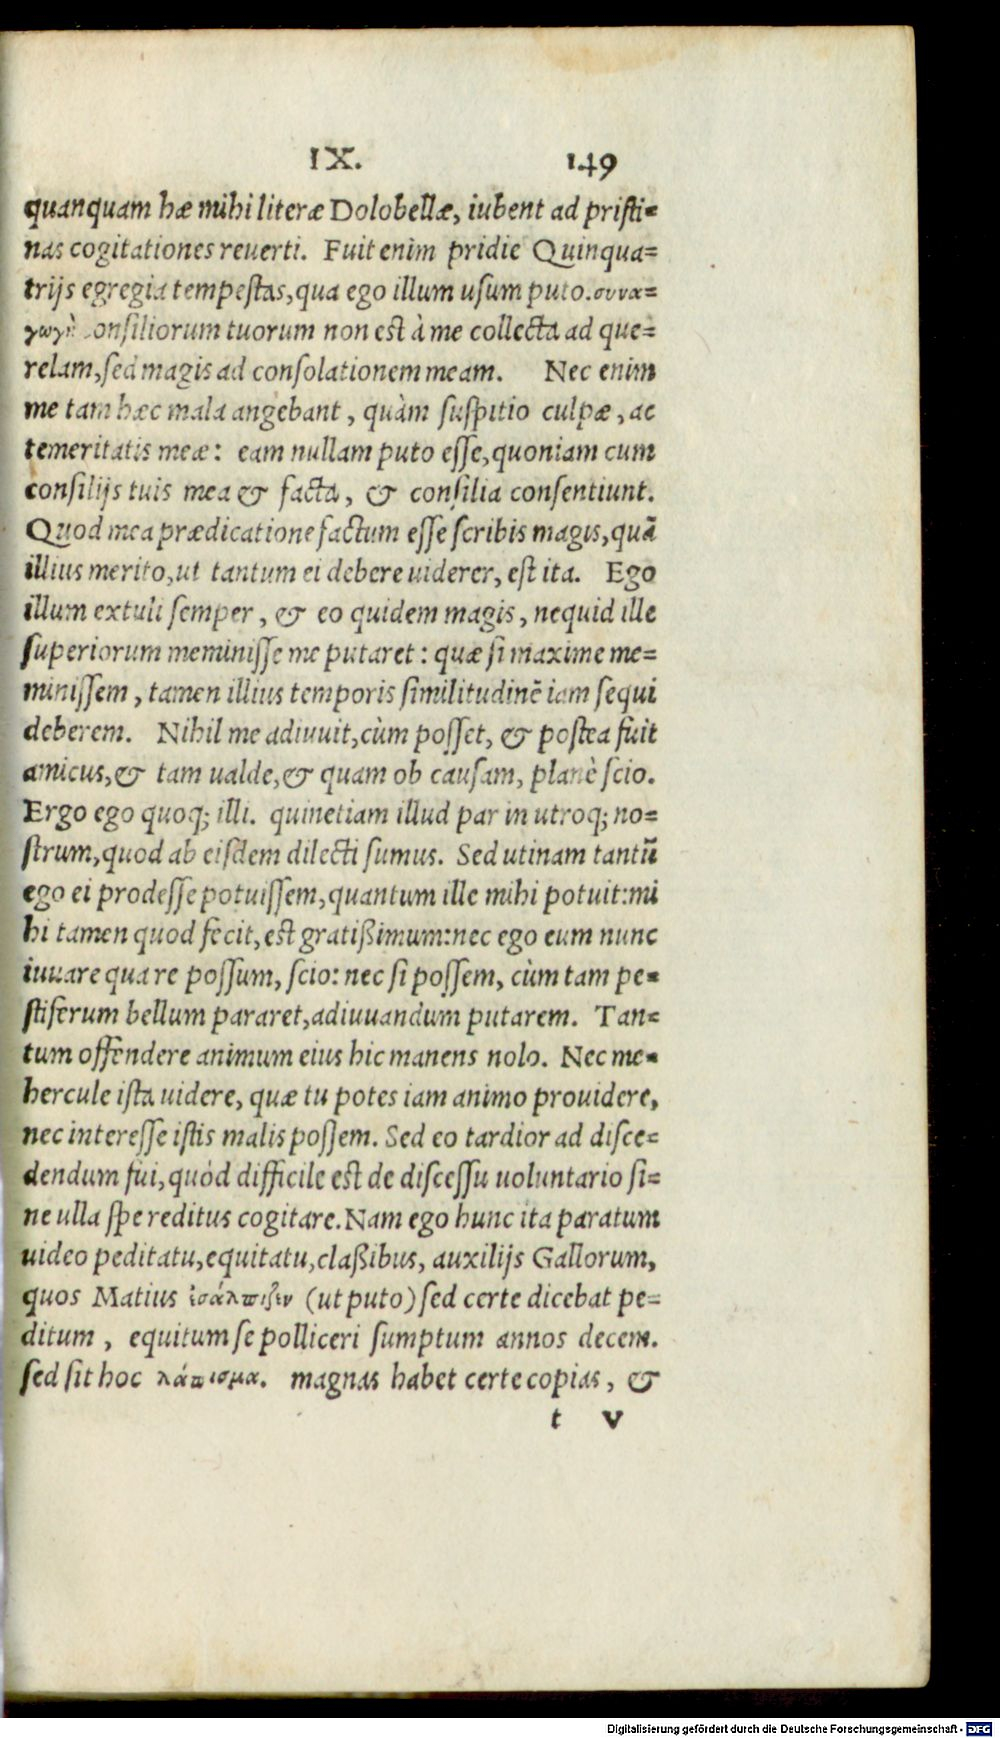 IX. 149
quanquam hæ mihi literæ Dolobellæ, iubent ad pristi=
nas cogitationes reuerti. Fuit enim pridie Quinqua=
trijs egregia tempestas, qua ego illum usum puto. συνα=
γωγὴ consiliorum tuorum non est à me collecta ad que=
relam, sed magis ad consolationem meam. Nec enim
me tam hæc mala angebant, quàm suspitio culpæ, ac
temeritatis meæ: eam nullam puto esse, quoniam cum
consilijs tuis mea & facta, & consilia consentiunt.
Quod mea prædicatione factum esse scribis magis, quã
illius merito, ut tantum ei debere uiderer, est ita. Ego
illum extuli semper, & eo quidem magis, nequid ille
superiorum meminisse me putaret: quæ si maxime me=
minissem, tamen illius temporis similitudinẽ iam sequi
deberem. Nihil me adiuuit, cùm posset, & postea fuit
amicus, & tam ualde, & quam ob causam, planè scio.
Ergo ego quoq; illi. quinetiam illud par in utroq; no=
strum, quod ab eisdem dilecti sumus. Sed utinam tantũ
ego ei prodesse potuissem, quantum ille mihi potuit: mi
hi tamen quod fecit, est gratißimum: nec ego eum nunc
iuuare qua re possum, scio: nec si possem, cùm tam pe=
stiferum bellum pararet, adiuuandum putarem. Tan=
tum offendere animum eius hic manens nolo. Nec me=
hercule ista uidere, quæ tu potes iam animo prouidere,
nec interesse istis malis possem. Sed eo tardior ad disce=
dendum fui, quòd difficile est de discessu uoluntario si=
ne ulla spe reditus cogitare. Nam ego hunc ita paratum
uideo peditatu, equitatu, claßibus, auxilijs Gallorum,
quos Matius (ut puto) sed certe dicebat pe=
ditum, equitum se polliceri sumptum annos decem.
sed sit hoc λάπισμα. magnas habet certe copias, &
t v
Digitalisierung gefördert durch die Deutsche Forschungsgemeinschaft - DFG